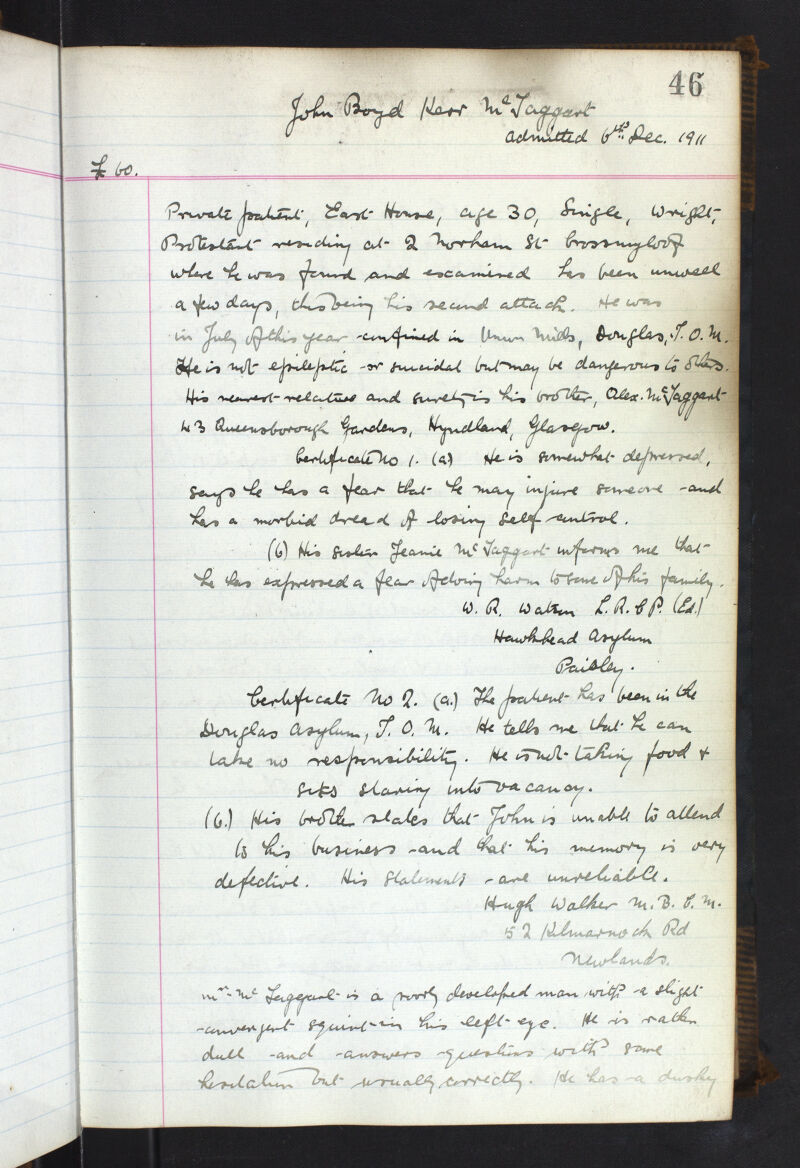 46
John Boyd Kerr McTaggart
admitted 6th Dec. 1911
60.
Private patient, East House, age 30, Single, Wright,
Protestant residing at 2 Norham St Crossmyloof
where he was found and examined has been unwell
a few days, this being his second attack. He was
in July of this year confined in Union Mills, Douglas, I. O. M.
He is not epileptic or suicidal but may be dangerous to others.
His nearest relative and surety is his brother, Alex. McTaggart
43 Queensborough Gardens, Hyndland, Glasgow.
Certificate No 1. (a) He is somewhat depressed,
says he has a fear that he may injure someone and
has a morbid dread of losing self control.
(b) His sister Jeanie McTaggart informs me that
he has expressed a fear of doing harm to some of his family.
W. R. Watson L. R. C P. (Ed.)
Hawkhead Asylum
Paisley.
Certificate No 2. (a.) The patient has been in the
Douglas Asylum, I. O. M. He tells me that he can
take no responsibility. He is not taking food &
sits staring into vacancy.
(b.) His brother states that John is unable to attend
to his business and that his memory is very
defective. His statements are unreliable.
Hugh Walker M. B. C. M.
52 Kilmarnock Rd
Newlands.
Mr. McTaggart is a poorly developed man with a slight
convergent squint in his left eye. He is rather
dull and answers questions with some
hesitation but usually correctly. He has a dusky